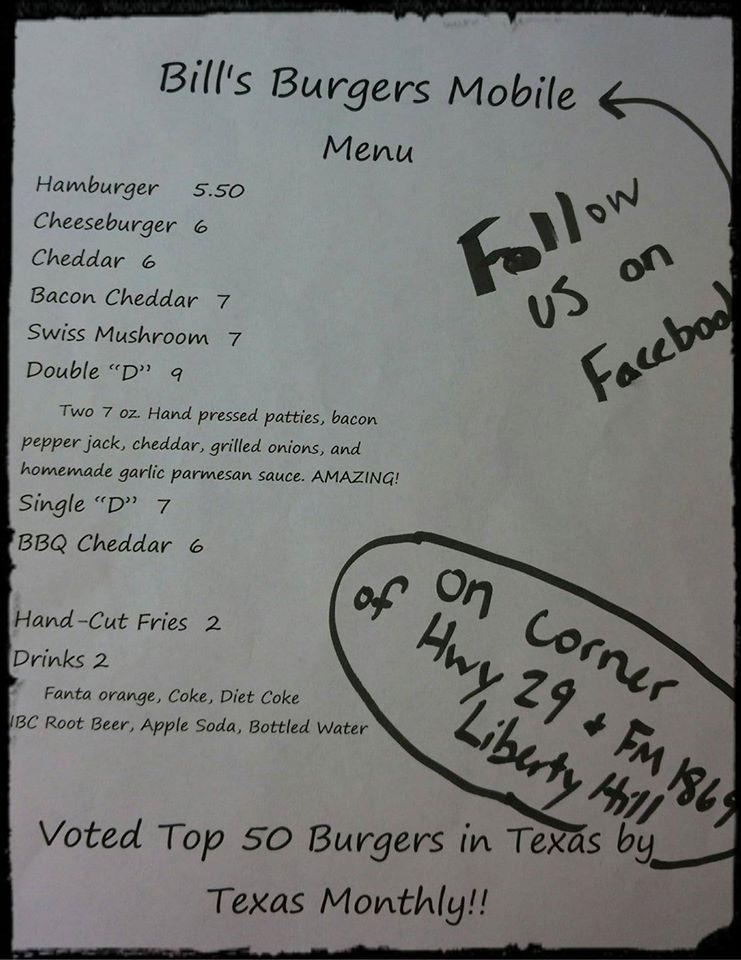 Bill's Burgers Mobile
Menu
Hamburger 5.50
Cheeseburger 6
Cheddar 6
Bacon Cheddar 7
Swiss Mushroom 7
Double “D” 9
Two 7 oz. Hand pressed patties, bacon
pepper jack, cheddar, grilled onions, and
homemade garlic parmesan sauce. AMAZING!
Single “D” 7
BBQ Cheddar 6
Hand-Cut Fries 2
Drinks 2
Fanta orange, Coke, Diet Coke
IBC Root Beer, Apple Soda, Bottled Water
Voted Top 50 Burgers in Texas by
Texas Monthly!!
Follow
us on
Facebook
On Corner
of Hwy 29 + FM 1869
Liberty Hill